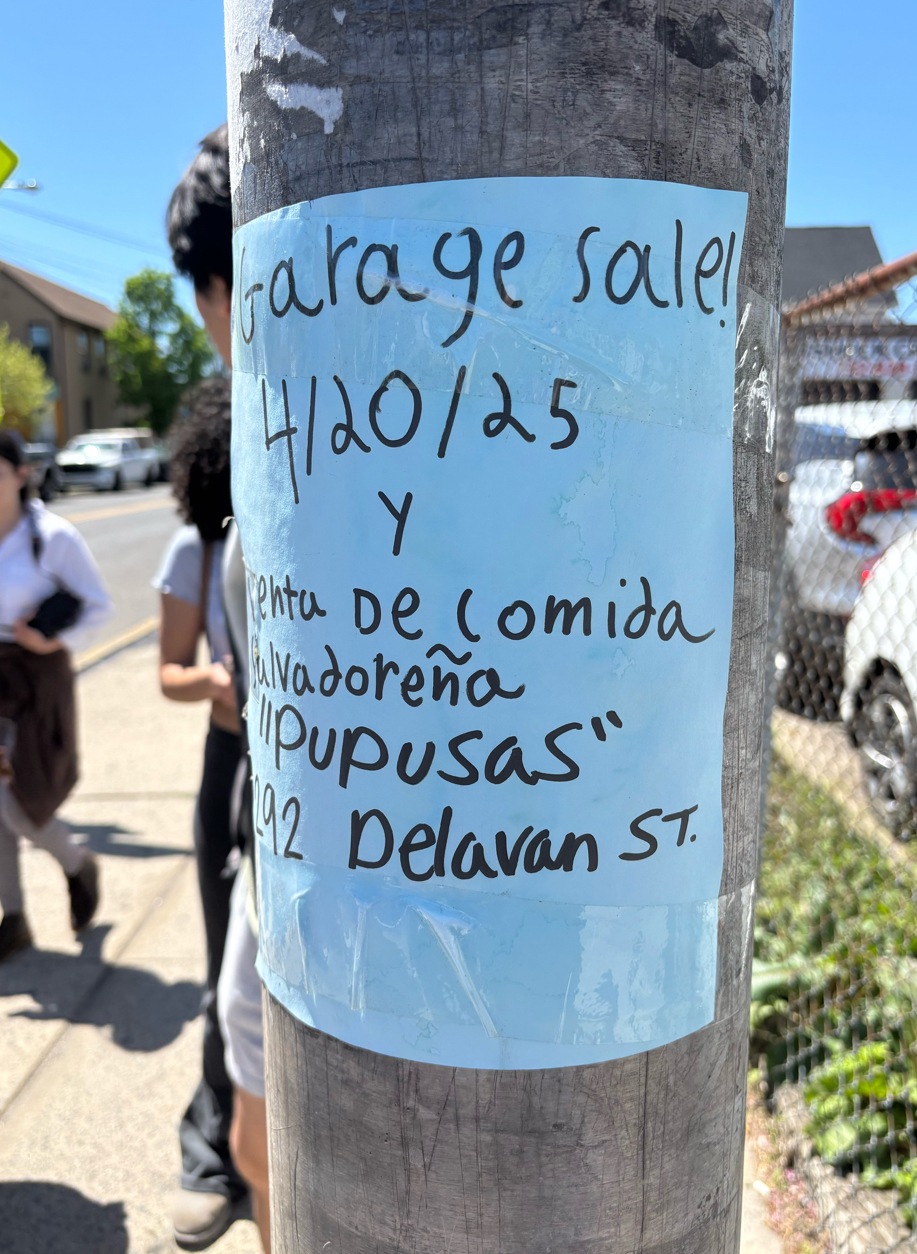 Garage Sale!
4/20/25
y
Venta De Comida
Salvadoreña
"Pupusas"
292 Delavan ST.